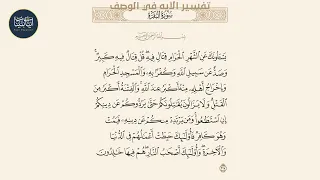 تفسير الآيه في الوصف
سُورَةُ البَقَرَةِ
بِسْمِ اللَّهِ الرَّحْمَٰنِ الرَّحِيمِ
يَسْـَٔلُونَكَ عَنِ ٱلشَّهْرِ ٱلْحَرَامِ قِتَالٍ فِيهِ ۖ قُلْ قِتَالٌ فِيهِ كَبِيرٌ ۖ
وَصَدٌّ عَن سَبِيلِ ٱللَّهِ وَكُفْرٌۢ بِهِۦ وَٱلْمَسْجِدِ ٱلْحَرَامِ
وَإِخْرَاجُ أَهْلِهِۦ مِنْهُ أَكْبَرُ عِندَ ٱللَّهِ ۚ وَٱلْفِتْنَةُ أَكْبَرُ مِنَ
ٱلْقَتْلِ ۗ وَلَا يَزَالُونَ يُقَٰتِلُونَكُمْ حَتَّىٰ يَرُدُّوكُمْ عَن دِينِكُمْ
إِنِ ٱسْتَطَٰعُوا۟ ۚ وَمَن يَرْتَدِدْ مِنكُمْ عَن دِينِهِۦ فَيَمُتْ
وَهُوَ كَافِرٌ فَأُو۟لَٰٓئِكَ حَبِطَتْ أَعْمَٰلُهُمْ فِى ٱلدُّنْيَا
وَٱلْءَاخِرَةِ ۖ وَأُو۟لَٰٓئِكَ أَصْحَٰبُ ٱلنَّارِ ۖ هُمْ فِيهَا خَٰلِدُونَ